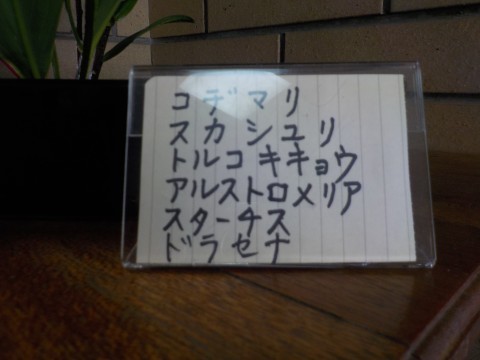 コデマリ
スカシユリ
トルコキキョウ
アルストロメリア
スターチス
ドラセナ